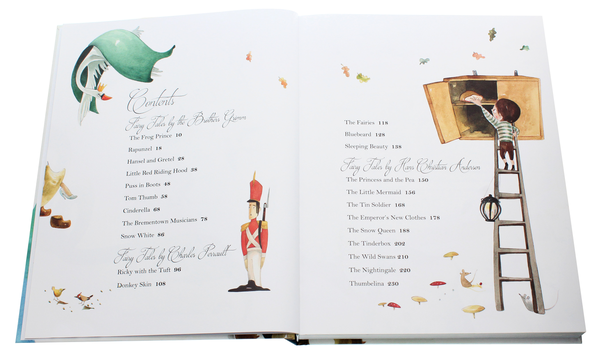 Contents
Fairy Tales by the Brothers Grimm
The Frog Prince 10
Rapunzel 18
Hansel and Gretel 28
Little Red Riding Hood 38
Puss in Boots 48
Tom Thumb 58
Cinderella 68
The Brementown Musicians 78
Snow White 86
Fairy Tales by Charles Perrault
Ricky with the Tuft 96
Donkey Skin 108
The Fairies 118
Bluebeard 128
Sleeping Beauty 138
Fairy Tales by Hans Christian Andersen
The Princess and the Pea 150
The Little Mermaid 156
The Tin Soldier 168
The Emperor's New Clothes 178
The Snow Queen 188
The Tinderbox 202
The Wild Swans 210
The Nightingale 220
Thumbelina 230